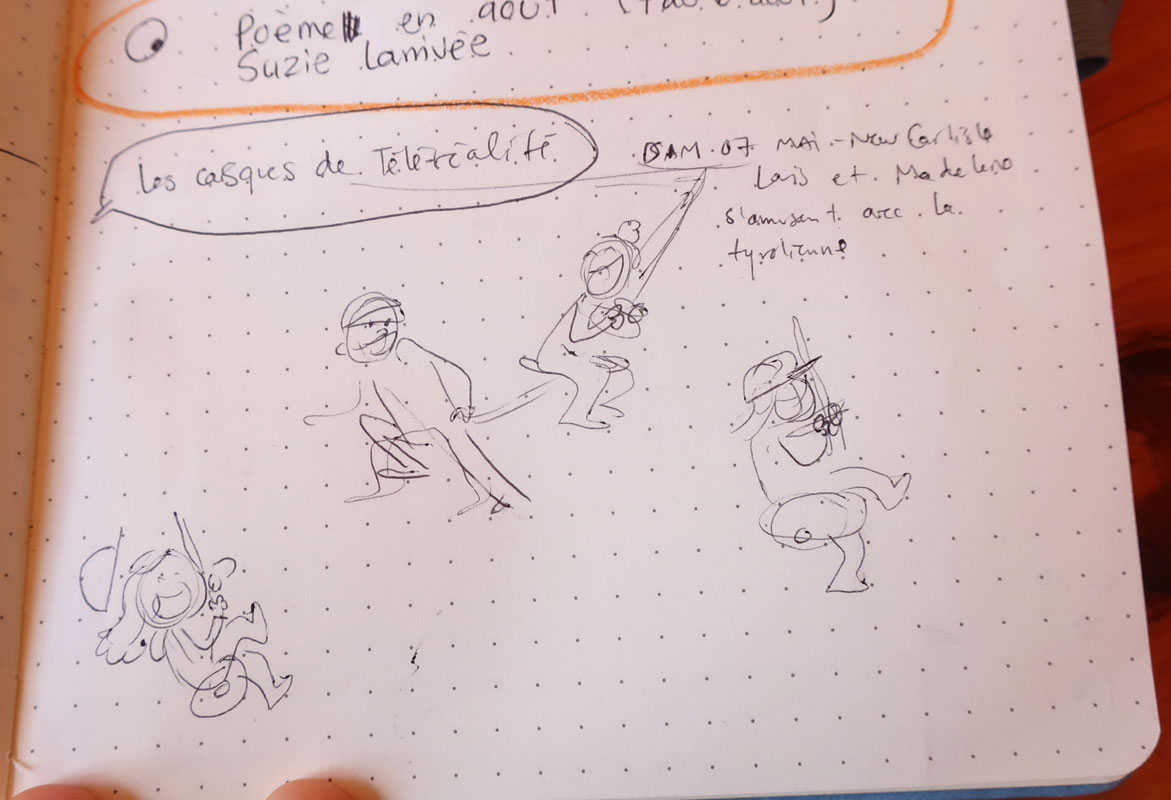 Poème en août
Suzie Larrivée
Les casques de Téléréalité
SAM. 07 MAI - New Carlisle
et Madeleine
s'amusant avec la
tyrolienne